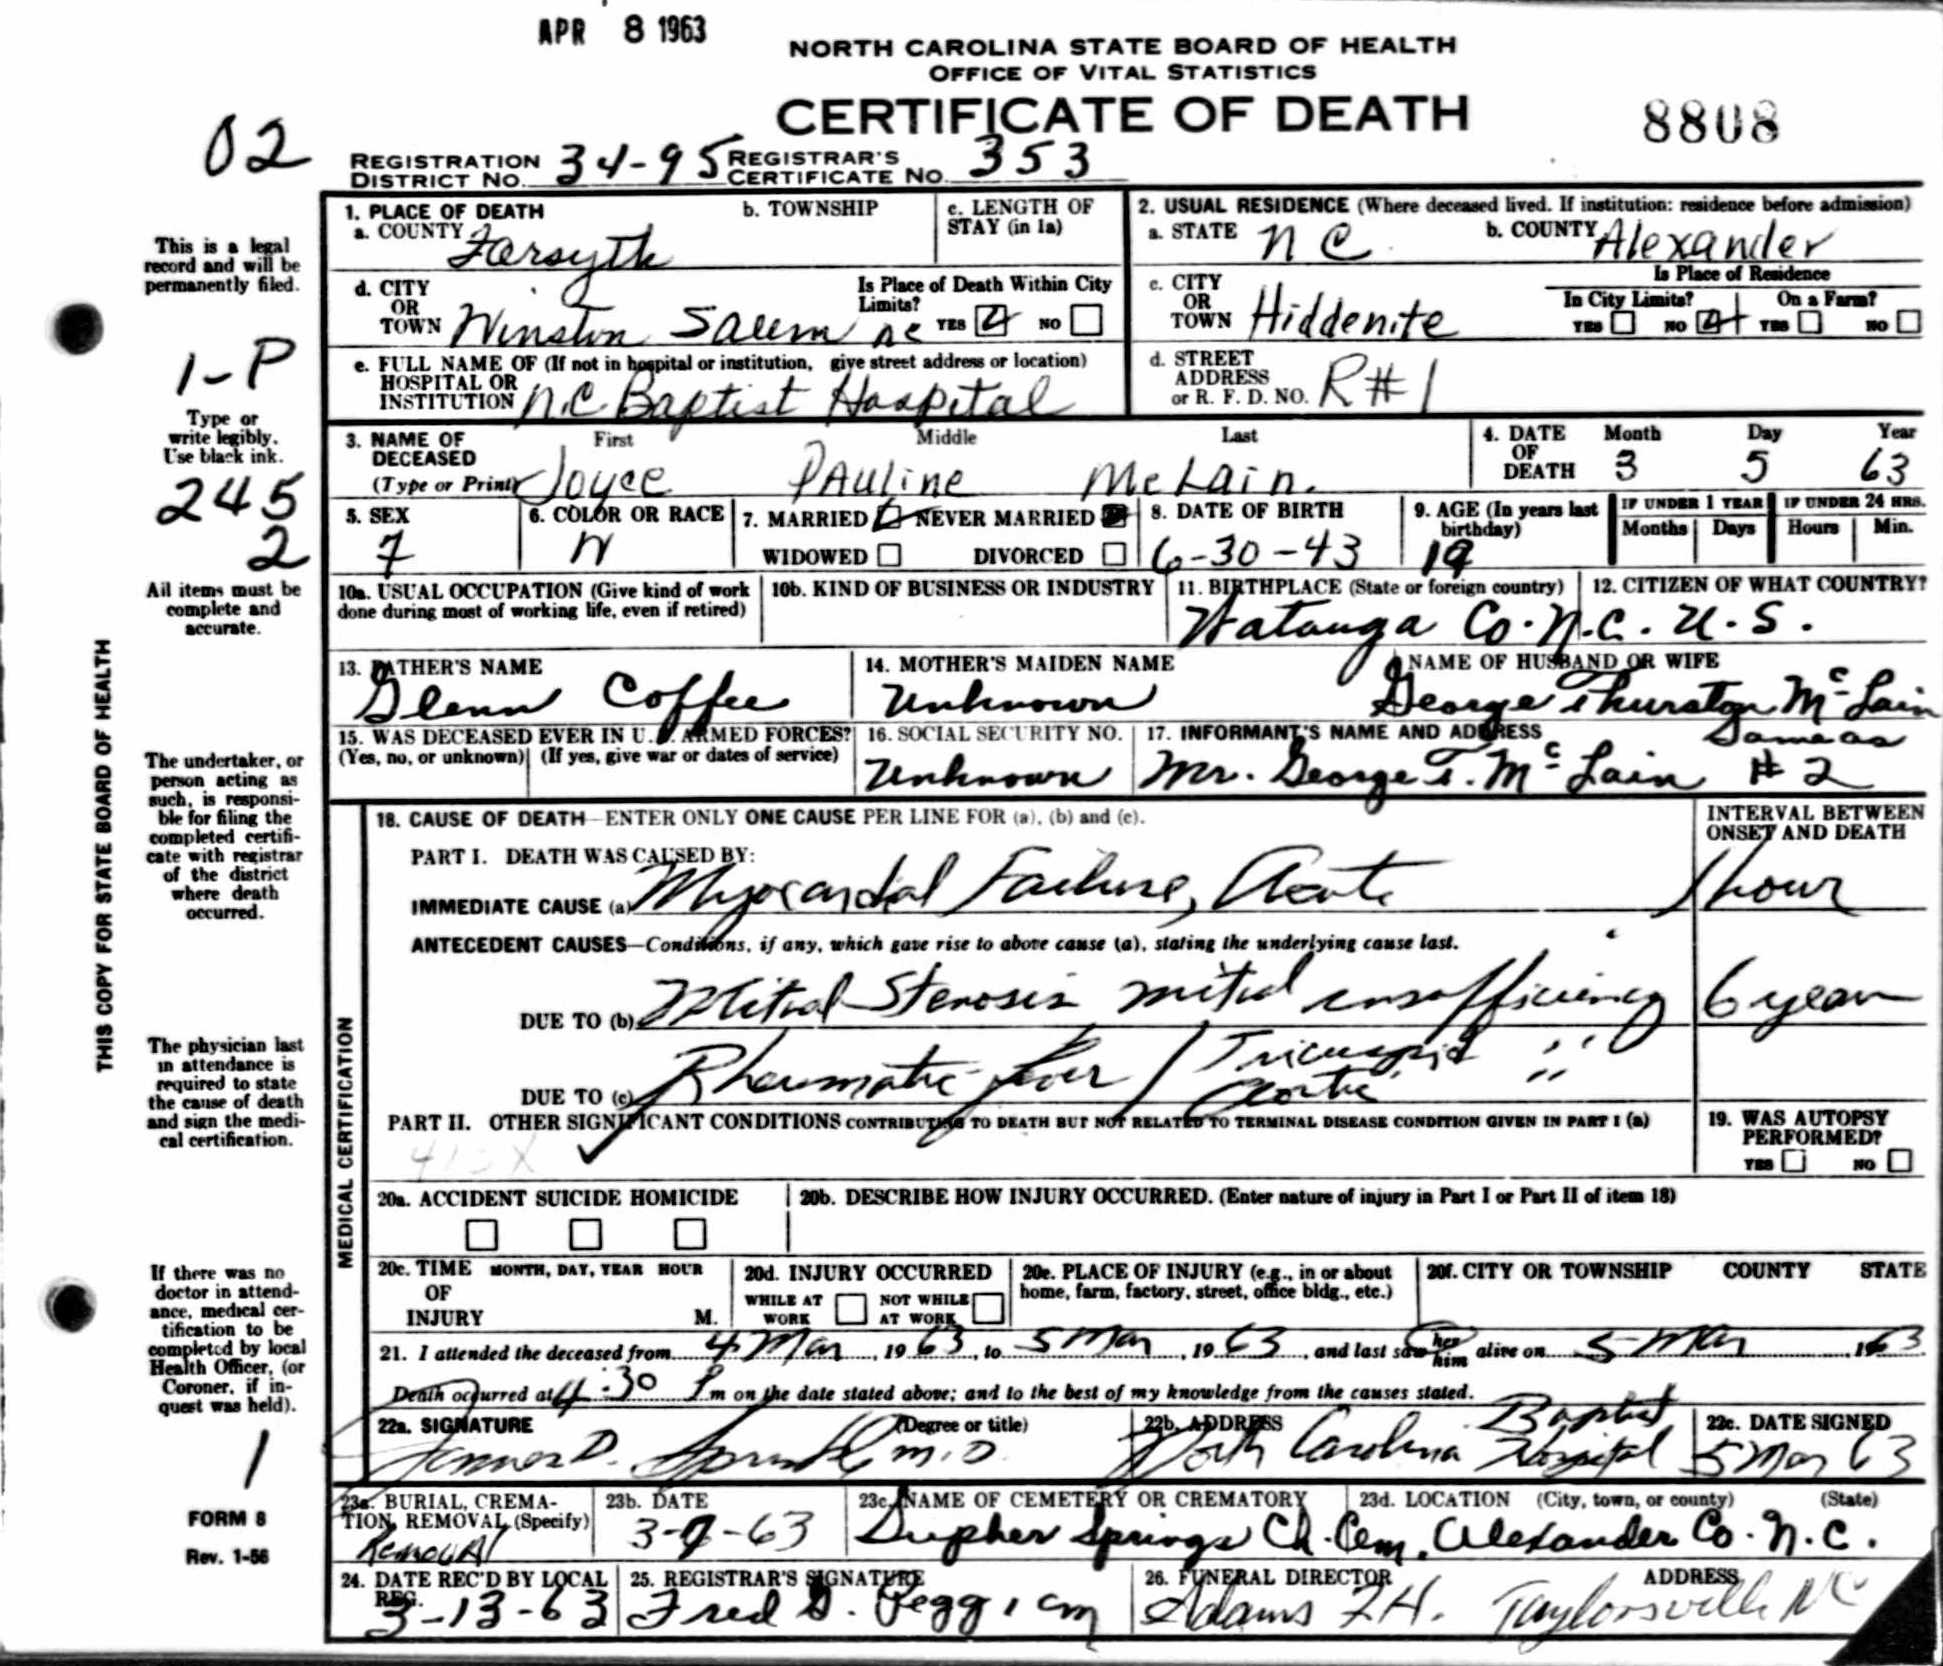 APR 8 1963
NORTH CAROLINA STATE BOARD OF HEALTH
OFFICE OF VITAL STATISTICS
CERTIFICATE OF DEATH
8808
02
REGISTRATION DISTRICT No. 34-95 REGISTRAR'S CERTIFICATE No. 353
This is a legal record and will be permanently filed.
1-P
Type or write legibly. Use black ink.
245
2
All items must be complete and accurate.
THIS COPY FOR STATE BOARD OF HEALTH
The undertaker, or person acting as such, is responsible for filing the completed certificate with registrar of the district where death occurred.
The physician last in attendance is required to state the cause of death and sign the medical certification.
If there was no doctor in attendance, medical certification to be completed by local Health Officer, (or Coroner, if inquest was held).
1
FORM 8
Rev. 1-56
1. PLACE OF DEATH
a. COUNTY Forsyth
b. TOWNSHIP
c. LENGTH OF STAY (in 1a)
2. USUAL RESIDENCE (Where deceased lived. If institution: residence before admission)
a. STATE N C
b. COUNTY Alexander
d. CITY OR TOWN Winston Salem NC
Is Place of Death Within City Limits? YES NO
c. CITY OR TOWN Hiddenite
Is Place of Residence
In City Limits? YES NO
On a Farm? YES NO
e. FULL NAME OF (If not in hospital or institution, give street address or location)
HOSPITAL OR INSTITUTION N.C Baptist Hospital
d. STREET ADDRESS or R. F. D. NO. R#1
3. NAME OF DECEASED (Type or Print)
First Middle Last
Joyce Pauline McLain.
4. DATE OF DEATH
Month Day Year
3 5 63
5. SEX
F
6. COLOR OR RACE
W
7. MARRIED NEVER MARRIED
WIDOWED DIVORCED
8. DATE OF BIRTH
6-30-43
9. AGE (In years last birthday)
19
IF UNDER 1 YEAR
Months Days
IF UNDER 24 HRS.
Hours Min.
10a. USUAL OCCUPATION (Give kind of work done during most of working life, even if retired)
10b. KIND OF BUSINESS OR INDUSTRY
11. BIRTHPLACE (State or foreign country)
Watauga Co. N.C.
12. CITIZEN OF WHAT COUNTRY?
U.S.
13. FATHER'S NAME
Glenn Coffee
14. MOTHER'S MAIDEN NAME
Unknown
NAME OF HUSBAND OR WIFE
George Thurston McLain
15. WAS DECEASED EVER IN U.S. ARMED FORCES?
(Yes, no, or unknown) (If yes, give war or dates of service)
16. SOCIAL SECURITY NO.
Unknown
17. INFORMANT'S NAME AND ADDRESS
Mr. George T. McLain Same as #2
MEDICAL CERTIFICATION
18. CAUSE OF DEATH—ENTER ONLY ONE CAUSE PER LINE FOR (a), (b) and (c).
INTERVAL BETWEEN ONSET AND DEATH
PART I. DEATH WAS CAUSED BY:
IMMEDIATE CAUSE (a) Myocardial Failure, Acute
1 hour
ANTECEDENT CAUSES—Conditions, if any, which gave rise to above cause (a), stating the underlying cause last.
DUE TO (b) Mitral Stenosis mitral insufficiency
6 year
DUE TO (c) Rheumatic fever / Tricuspid ''
Aortic ''
PART II. OTHER SIGNIFICANT CONDITIONS CONTRIBUTING TO DEATH BUT NOT RELATED TO TERMINAL DISEASE CONDITION GIVEN IN PART I (a)
19. WAS AUTOPSY PERFORMED?
YES NO
20a. ACCIDENT SUICIDE HOMICIDE
20b. DESCRIBE HOW INJURY OCCURRED. (Enter nature of injury in Part I or Part II of item 18)
20c. TIME OF INJURY MONTH, DAY, YEAR HOUR M.
20d. INJURY OCCURRED
WHILE AT WORK NOT WHILE AT WORK
20e. PLACE OF INJURY (e.g., in or about home, farm, factory, street, office bldg., etc.)
20f. CITY OR TOWNSHIP COUNTY STATE
21. I attended the deceased from 4 Mar, 1963, to 5 Mar, 1963, and last saw her him alive on 5 Mar 1963
Death occurred at 4:30 P m on the date stated above; and to the best of my knowledge from the causes stated.
22a. SIGNATURE (Degree or title)
M.D.
22b. ADDRESS
North Carolina Baptist Hospital
22c. DATE SIGNED
5 Mar 63
23a. BURIAL, CREMATION, REMOVAL (Specify)
Removal
23b. DATE
3-7-63
23c. NAME OF CEMETERY OR CREMATORY
Sulpher Springs Ch. Cem.
23d. LOCATION (City, town, or county) (State)
Alexander Co. N.C.
24. DATE REC'D BY LOCAL REG.
3-13-63
25. REGISTRAR'S SIGNATURE
Fred G. Pegg, cm
26. FUNERAL DIRECTOR ADDRESS
Adams F.H. Taylorsville NC